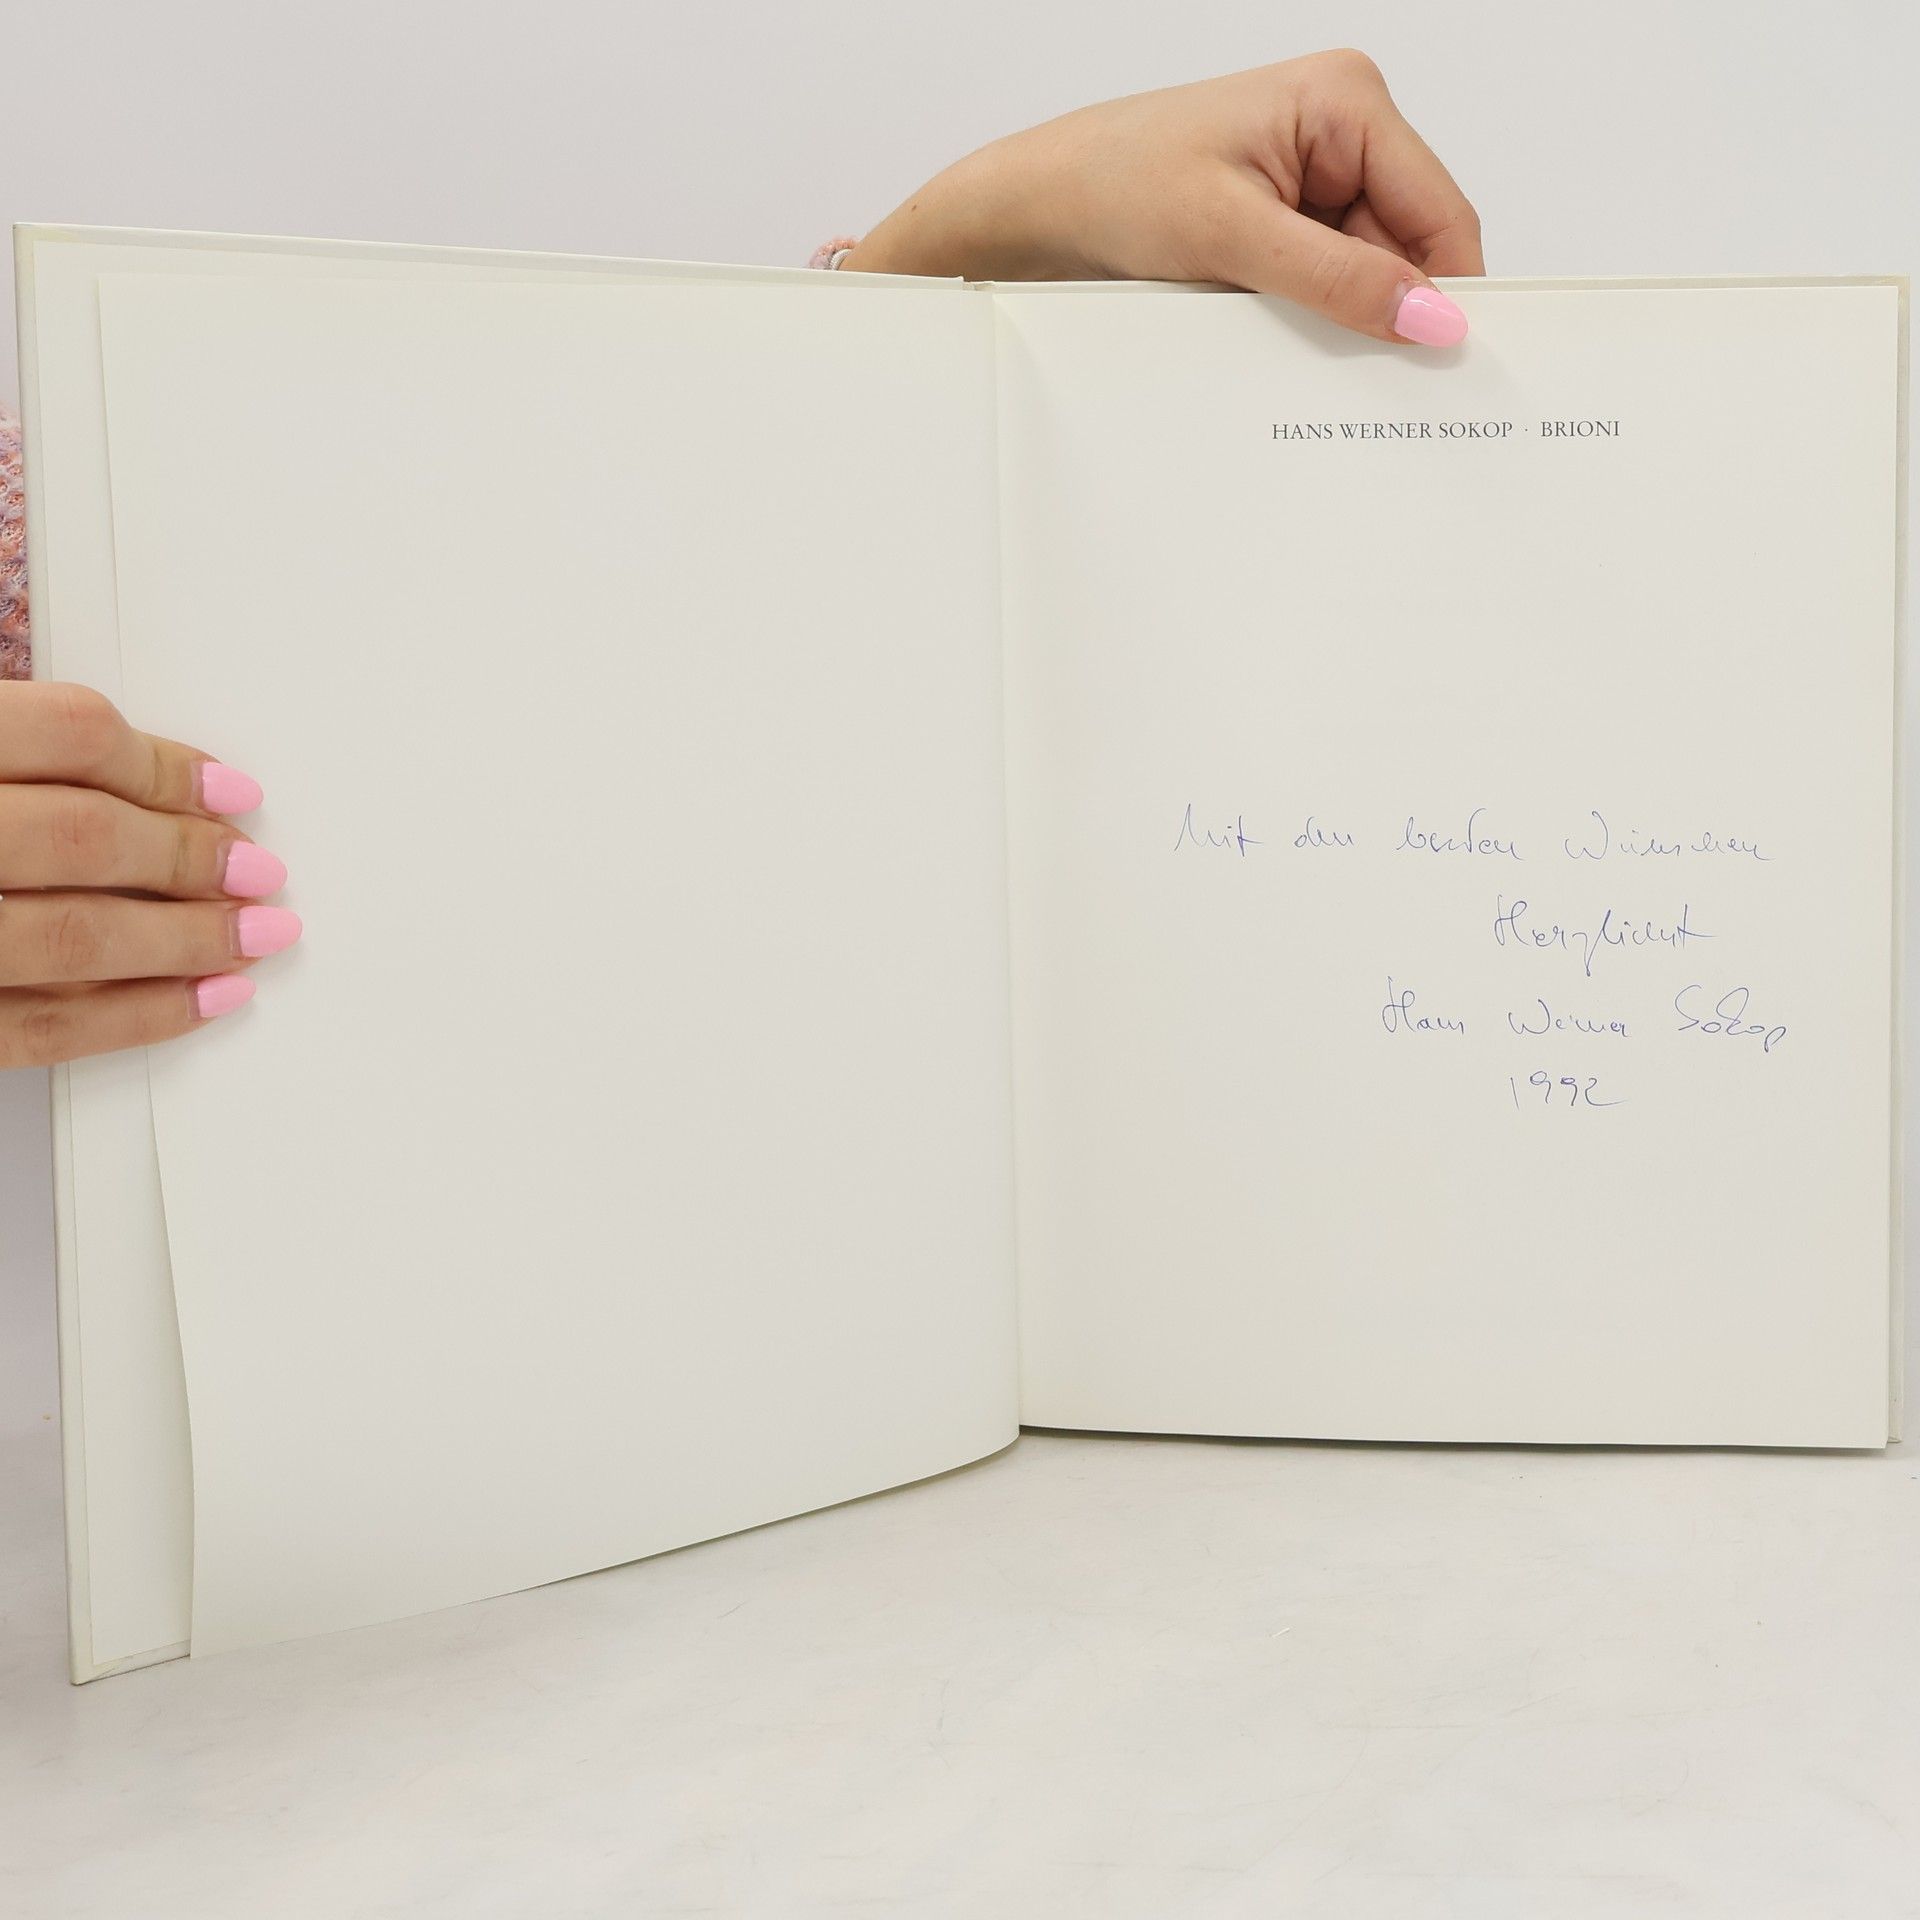 HANS WERNER SOKOP · BRIONI
Mit den besten Wünschen
Herzlichst
Hans Werner Sokop
1992